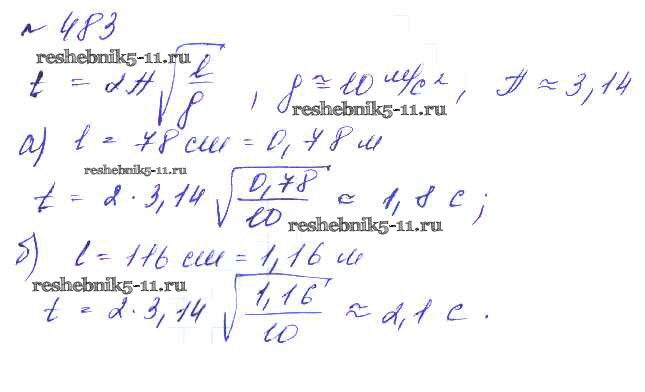 № 483
reshebnik5-11.ru
t = 2π√(l/g) , g ≈ 10 м/с², π ≈ 3,14
reshebnik5-11.ru
а) l = 78 см = 0,78 м
reshebnik5-11.ru
t = 2 · 3,14 √(0,78/10) ≈ 1,8 с;
reshebnik5-11.ru
б) l = 116 см = 1,16 м
reshebnik5-11.ru
t = 2 · 3,14 √(1,16/10) ≈ 2,1 с.